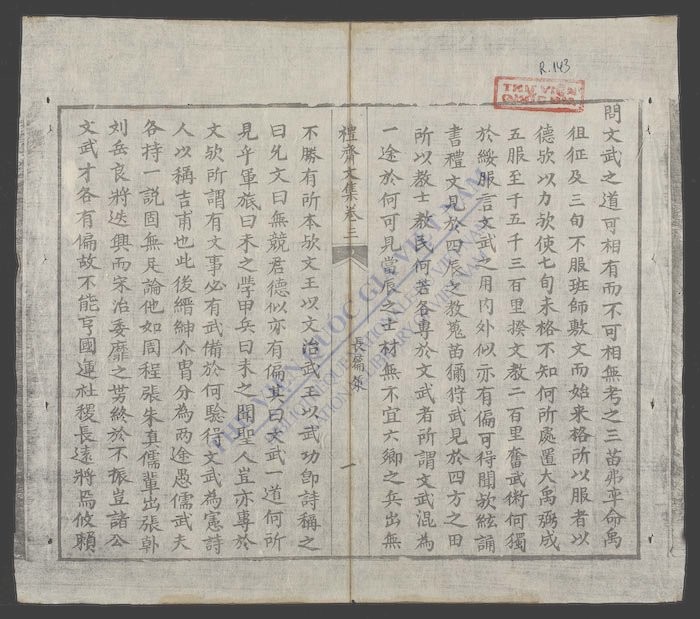 R.143
THƯ VIỆN
QUỐC GIA
問文武之道可相有而不可相無考之三苗弗率命禹
徂征及三旬不服班師敷文而始来格所以服者以
德欤以力欤使七旬未格不知何所處置大禹弼成
五服至千五千三百里揆文教二百里奮武衛何獨
於綏服言文武之用内外似亦有偏可得聞欤絃誦
書禮文見於四辰之教蒐苗獮狩武見於四方之田
所以教士教民何若各專於文武者所謂文武混為
一途於何可見當辰之士材無不宜六卿之兵出無
禮齋文集卷三
長篇策
一
不勝有所本欤文王以文治武王以武功卽詩稱之
曰允文曰無競君德似亦有偏其曰文武一道何所
見乎軍旅曰未之學甲兵曰未之聞聖人豈亦專於
文欤所謂有文事必有武備於何驗得文武為憲詩
人以稱吉甫也此後縉紳介胄分為两途愚儒武夫
各持一説固無足論他如周程張朱真儒輩出張韓
刘岳良將迭興而宋治委靡之势終於不振豈諸公
文武才各有偏故不能亨國運社稷長遠將焉攸賴
THƯ VIỆN QUỐC GIA VIỆT NAM
BIBLIOTHEQUE NATIONALE DU VIETNAM
NATIONAL LIBRARY OF VIETNAM